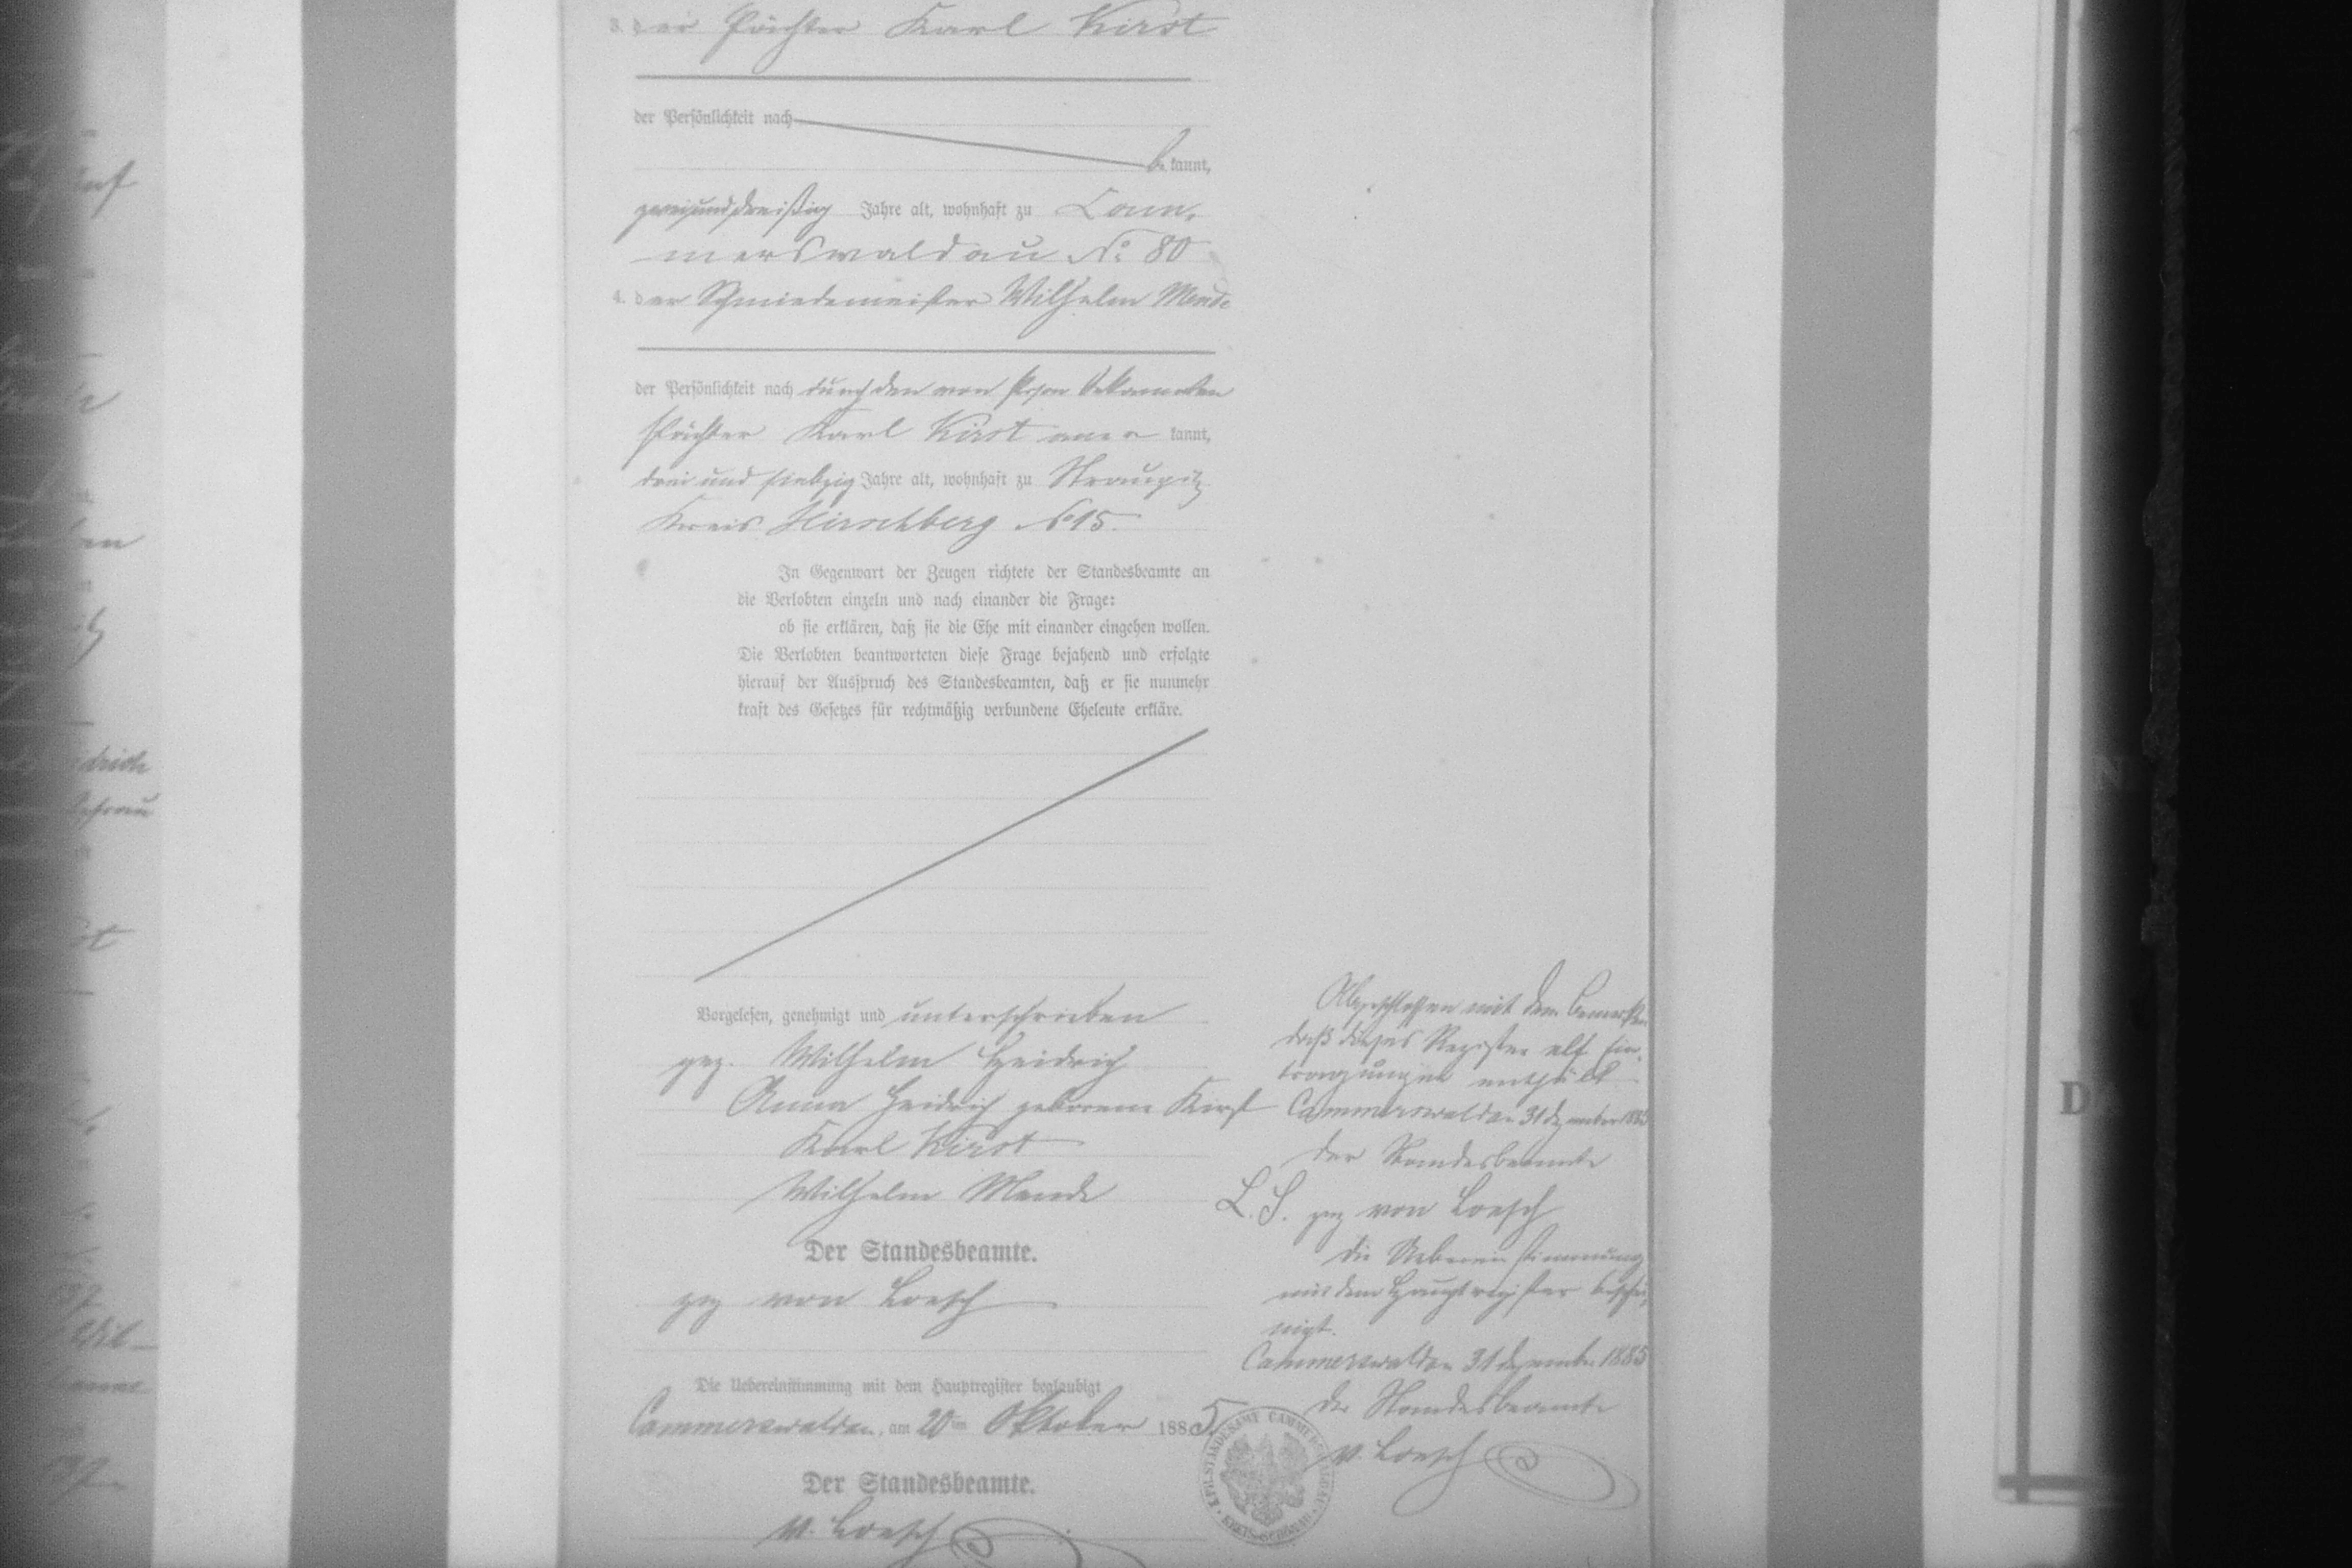 3. der Pächter Karl Kirst
der Persönlichkeit nach
be kannt,
zweiunddreißig Jahre alt, wohnhaft zu Cam-
merswaldau No 80
4. der Schmiedemeister Wilhelm Mende
der Persönlichkeit nach durch den von Person bekannten
Pächter Karl Kirst aner kannt,
drei und siebzig Jahre alt, wohnhaft zu Straupitz
Kreis Hirschberg No 15.
In Gegenwart der Zeugen richtete der Standesbeamte an
die Verlobten einzeln und nach einander die Frage:
ob sie erklären, daß sie die Ehe mit einander eingehen wollen.
Die Verlobten beantworteten diese Frage bejahend und erfolgte
hierauf der Ausspruch des Standesbeamten, daß er sie nunmehr
kraft des Gesetzes für rechtmäßig verbundene Eheleute erkläre.
Vorgelesen, genehmigt und unterschrieben
gez. Wilhelm Heidrich
Anna Heidrich geborene Kirst
Karl Kirst
Wilhelm Mende
Der Standesbeamte.
gez von Loesch
Die Uebereinstimmung mit dem Hauptregister beglaubigt
Cammerswaldau, am 20ten Oktober 1885
Der Standesbeamte.
v. Loesch
Abgeschlossen mit dem Bemerken
daß dieses Register elf Ein-
tragungen enthält
Cammerswaldau 31 Dezember 1885
Der Standesbeamte
L. S. gez von Loesch
Die Uebereinstimmung
mit dem Hauptregister beschei-
nigt.
Cammerswaldau 31 Dezember 1885
Der Standesbeamte
v. Loesch
KREIS SCHÖNAU